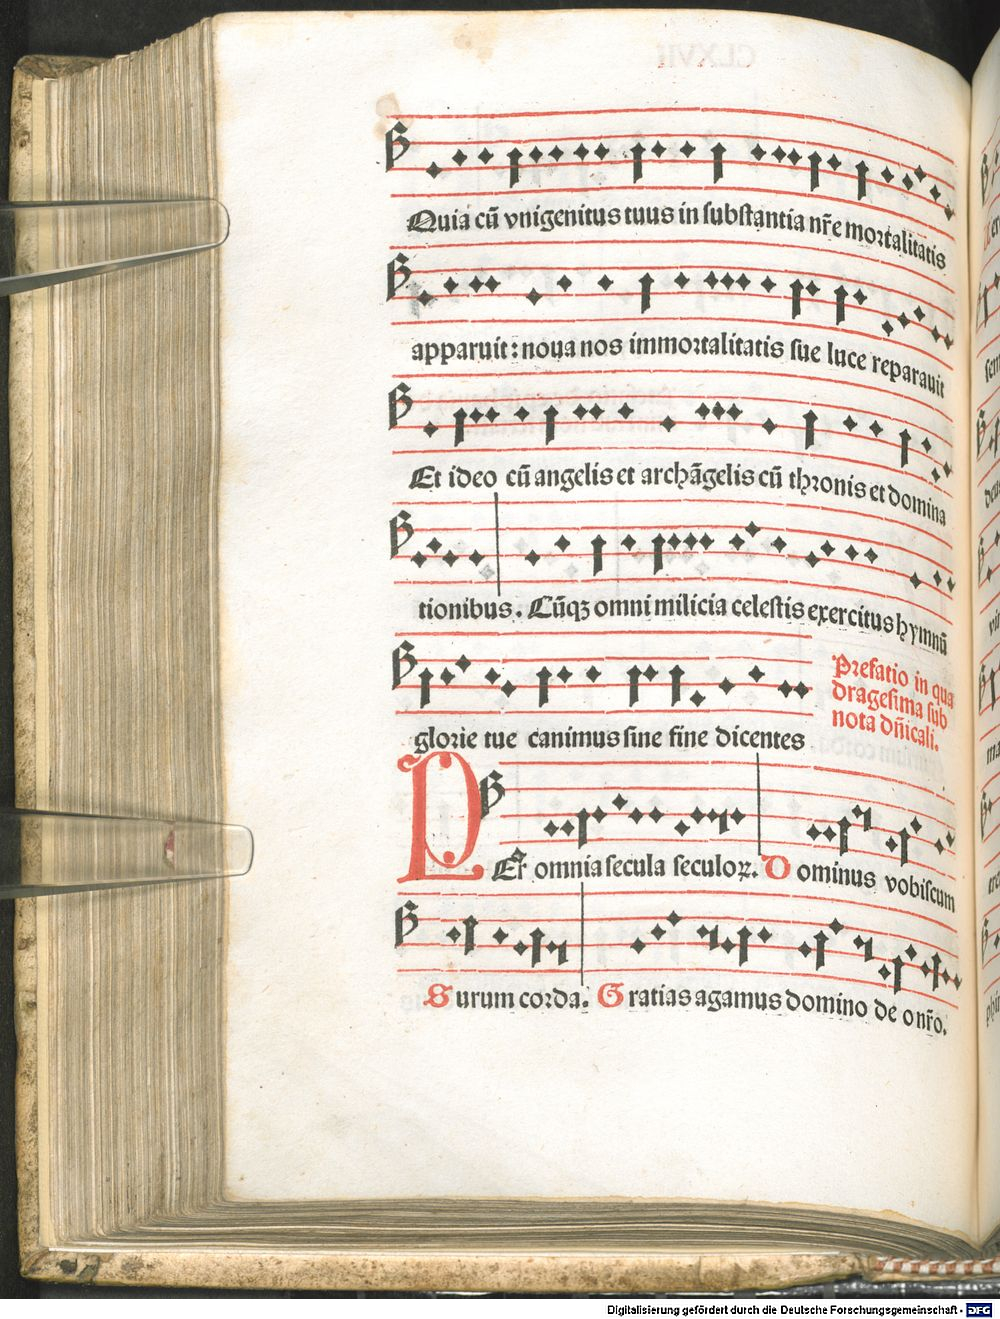 Quia cū vnigenitus tuus in substantia nr̄e mortalitatis
apparuit: noua nos immortalitatis sue luce reparauit
Et ideo cū angelis et archāgelis cū thronis et domina
tionibus. Cūqꝫ omni milicia celestis exercitus hymnū
glorie tue canimus sine fine dicentes
Prefatio in qua
dragesima sub
nota dn̄icali.
PEr omnia secula seculoꝝ. Dominus vobiscum
Sursum corda. Gratias agamus domino deo nr̄o.
Digitalisierung gefördert durch die Deutsche Forschungsgemeinschaft - DFG